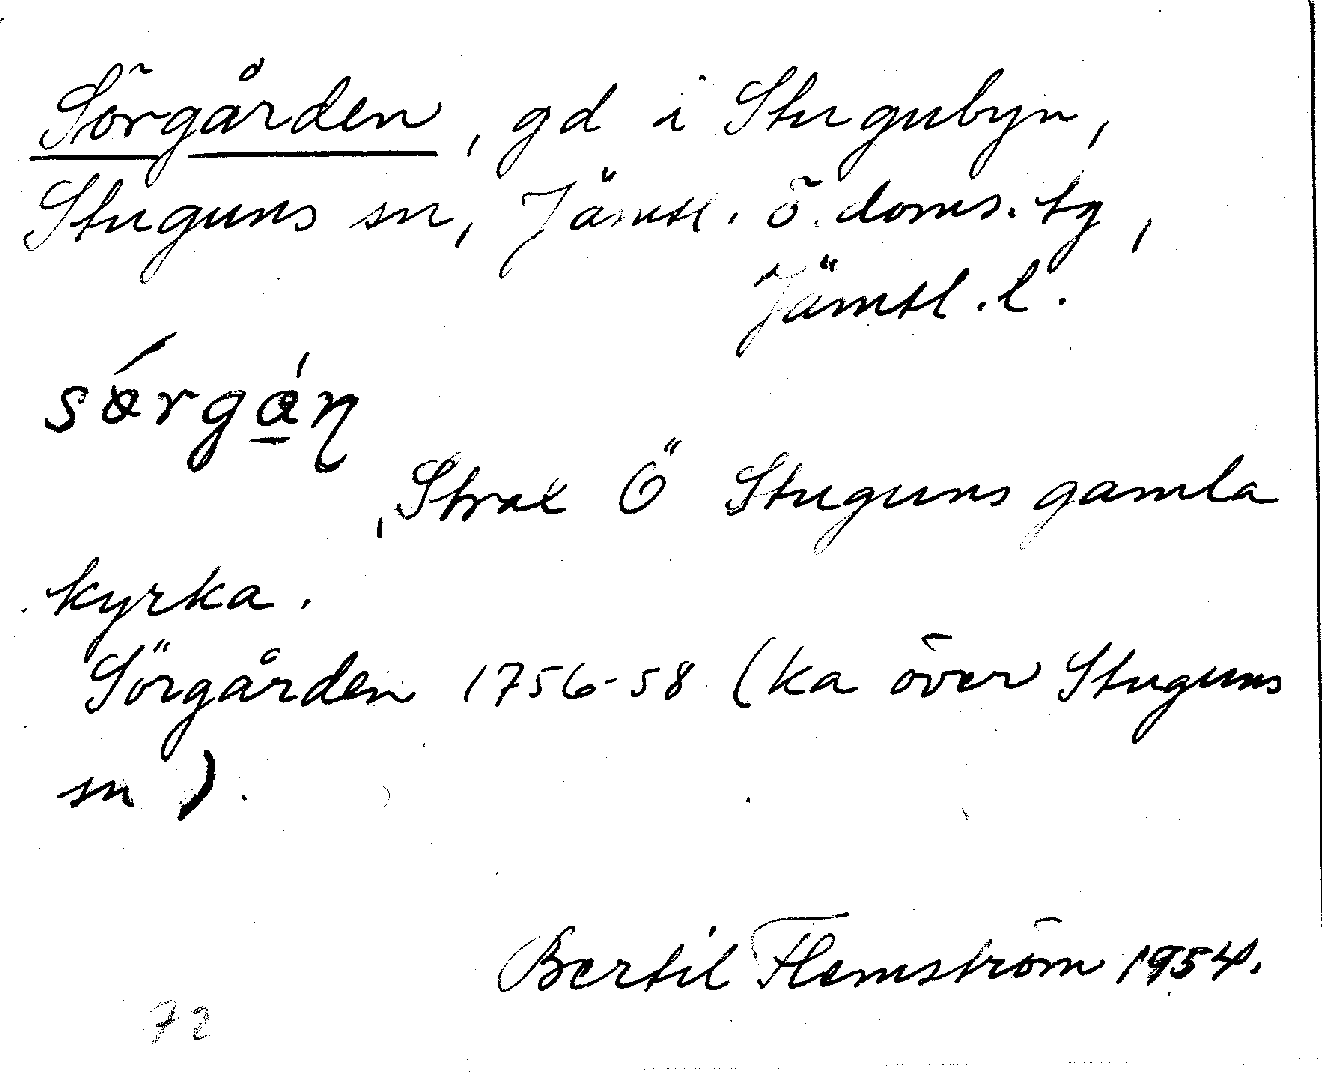 Sörgården, gd i Stugubyn,
Stuguns sn, Jämtl. ö. doms. tg,
Jämtl. l.
Strax Ö Stuguns gamla
kyrka.
Sörgården 1756-58 (ka över Stuguns
sn).
Bertil Flemström 1954.
72